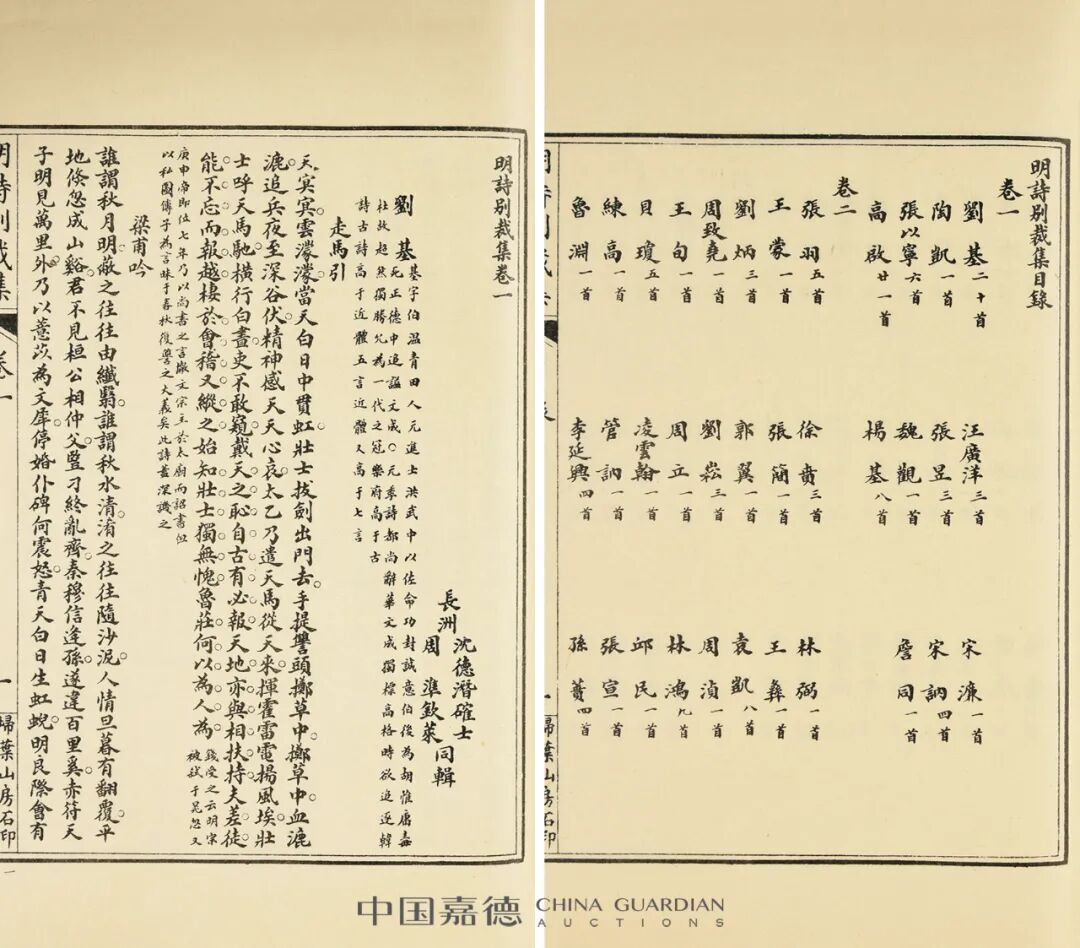 明詩别裁集目錄
卷一
劉基二十首 汪廣洋三首 宋濂一首
陶凱一首 張昱三首 宋訥四首
張以寧六首 魏觀一首 詹同一首
高啟廿一首 楊基八首
卷二
張羽五首 徐賁三首 林弼一首
王蒙一首 張簡一首 王彝一首
劉炳三首 郭翼一首 袁凱八首
周致堯一首 劉崧三首 周湞一首
王旬一首 周立一首 林鴻九首
貝瓊五首 凌雲翰一首 邱民一首
練高一首 管訥一首 張宣一首
魯淵一首 李延興四首 孫蕡四首
掃葉山房石印
明詩别裁集卷一
長洲 沈德潛確士
周準欽萊 同輯
劉基 基字伯温青田人元進士洪武中以佐命功封誠意伯後為胡惟庸毒
死正德中追謚文成○元季詩都尚辭華文成獨標高格時欲追逐韓
杜故超然獨勝允為一代之冠樂府高于古
詩古詩高于近體五言近體又高于七言
走馬引
天冥冥雲濛濛當天白日中貫虹壯士拔劍出門去手提讐頭擲草中擲草中血漉
漉追兵夜至深谷伏精神感天天心哀太乙乃遣天馬從天來揮霍雷電揚風埃壯
士呼天馬馳横行白晝吏不敢窺戴天之恥自古有必報天地亦與相扶持夫差徒
能不忘而報越棲於會稽又縱之始知壯士獨無愧魯莊何以為人為 錢受之云明宗
被弑于晃忽叉
庚申帝即位七年乃以尚書之言撤文宗主於太廟而詔書但
以私圖傳子為言昧于春秋復讐之大義矣此詩蓋深譏之
梁甫吟
誰謂秋月明蔽之往往由纖翳誰謂秋水清淆之往往隨沙泥人情旦暮有翻覆平
地倏忽成山谿君不見桓公相仲父豎刁終亂齊秦穆信逢孫遂違百里奚赤符天
子明見萬里外乃以薏苡為文犀停婚仆碑何震怒青天白日生虹蜺明良際會有
明詩别裁集
卷一
一
掃葉山房石印
中国嘉德 CHINA GUARDIAN
AUCTIONS